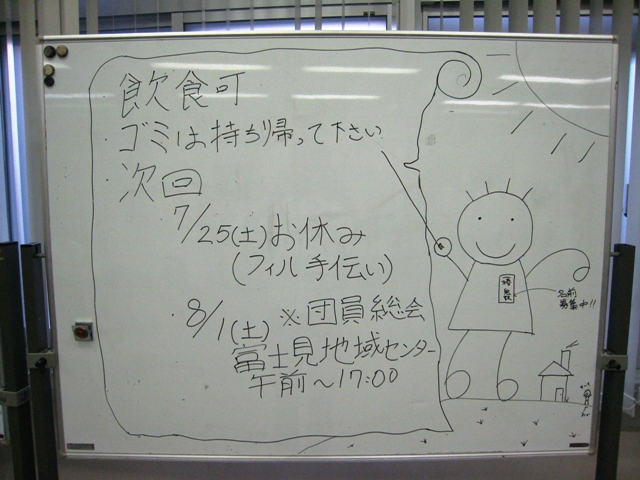 飲食可
・ゴミは持ち帰って下さい
・次回
7/25(土)お休み
(フィル手伝い)
・8/1(土) ※団員総会
富士見地域センター
午前〜17:00
名前
募集中!!